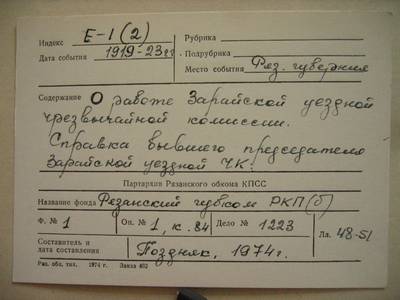 Индекс Е-I (2) Рубрика
Дата события 1919-23гг Подрубрика
Место события Ряз. губерния
Содержание О работе Зарайской уездной
чрезвычайной комиссии.
Справка бывшего председателя
Зарайской уездной ЧК.
Партархив Рязанского обкома КПСС
Название фонда Рязанский губком РКП(б)
Ф. № 1 Оп. № 1, к. 84 Дело № 1223 Лл. 48-51
Составитель и
дата составления Поздняк, 1974г.
Ряз. обл. тип. 1974 г. Заказ 402